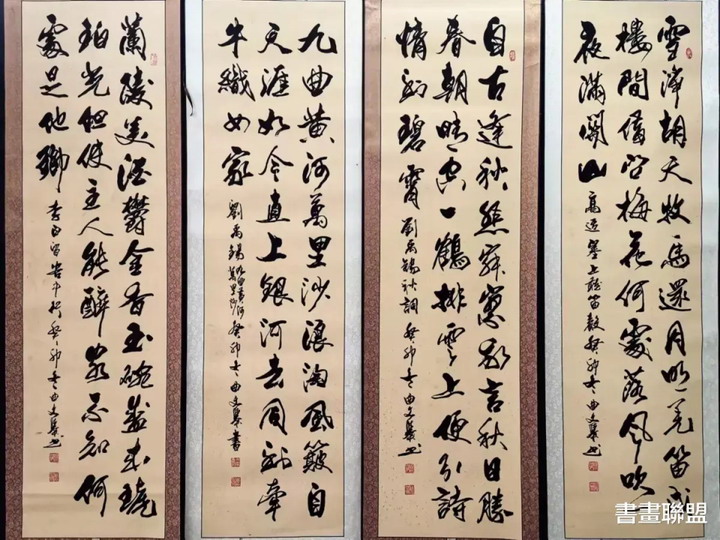 雪淨胡天牧馬還月明羌笛戍
樓間借問梅花何處落風吹
夜滿關山
高適塞上聽笛聲癸卯冬曲文舉書
自古逢秋悲寂寥我言秋日勝
春朝晴空一鶴排雲上便引詩
情到碧霄
劉禹錫秋詞癸卯冬曲文舉書
九曲黃河萬里沙浪淘風簸自
天涯如今直上銀河去同到牽
牛織女家
劉禹錫癸卯冬曲文舉書
蘭陵美酒鬱金香玉碗盛來琥
珀光但使主人能醉客不知何
處是他鄉
李白客中作癸卯冬曲文舉書
書畫聯盟